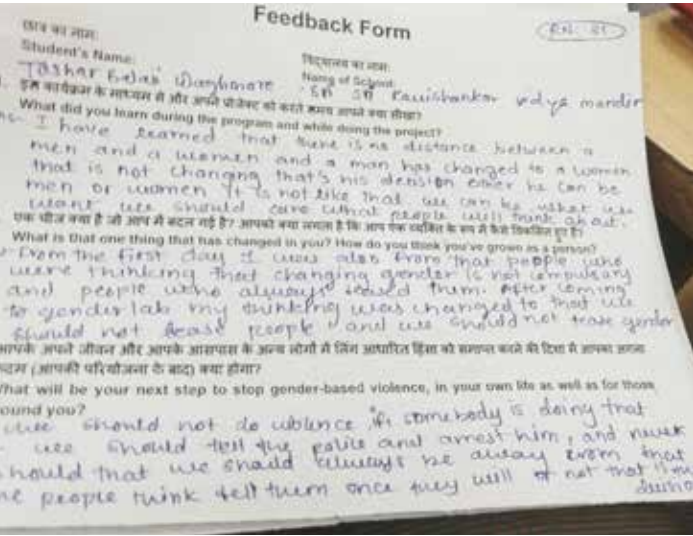 Feedback Form
RN: 51
छात्र का नाम:
Student's Name:
विद्यालय का नाम:
Name of School:
Tashar Waghmare
Sri Sri Ravishankar vidya mandir
इस कार्यक्रम के माध्यम से और अपने प्रोजेक्ट को करते समय आपने क्या सीखा?
What did you learn during the program and while doing the project?
I have learned that there is no distance between a
men and a women and a man has changed to a women
that is not changing that's his desision either he can be
men or women it is not like that we can be what we
want we should care what people will think about.
एक चीज़ क्या है जो आप में बदल गई है? आपको क्या लगता है कि आप एक व्यक्ति के रूप में कैसे विकसित हुए हैं?
What is that one thing that has changed in you? How do you think you've grown as a person?
From the first day I was also from that people who
were thinking that changing gender is not compulsary
and people who always teased them. After coming
to gender lab my thinking was changed to that we
should not tease people and we should not tease gender
आपके अपने जीवन और आपके आसपास के अन्य लोगों में लिंग आधारित हिंसा को समाप्त करने की दिशा में आपका अगला
कदम (आपकी परियोजना के बाद) क्या होगा?
What will be your next step to stop gender-based violence, in your own life as well as for those
ound you?
we should not do somebody is doing that
we should tell the police and arrest him, and never
should that we should always be away from that
people think tell them once they will not that is